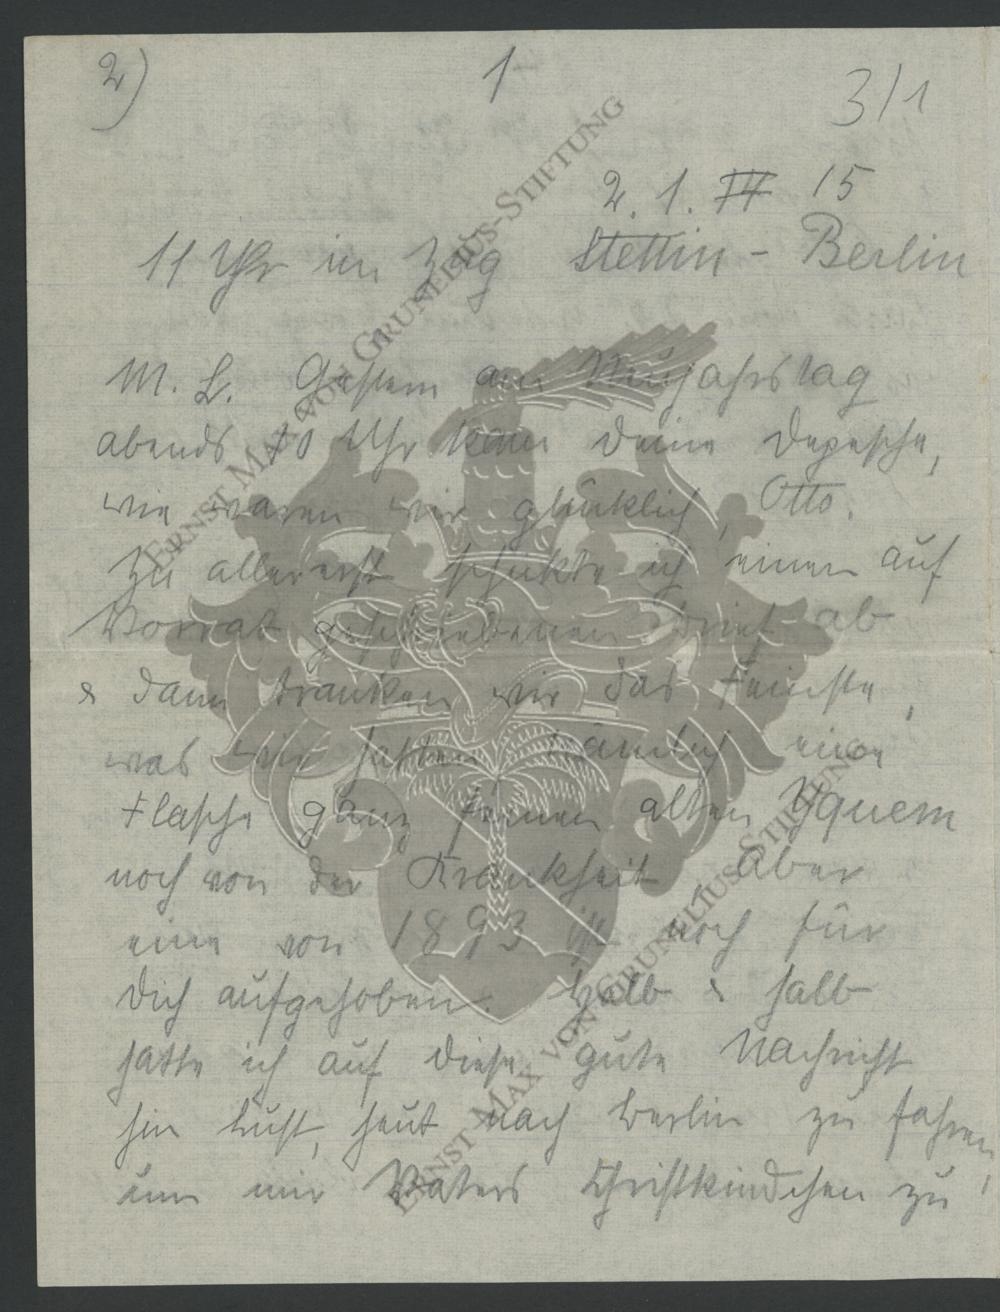 2) 1 3/1
2. 1. 15
11 Uhr im Zug Stettin - Berlin
M. L. Gestern am Neujahrstag
abends 10 Uhr kam deine Depesche,
wie waren wir glücklich, Otto.
Zu allererst schickte ich einen auf
Vorrat geschriebenen Brief ab
& dann tranken wir das Feinste,
was wir hatten, nämlich eine
Flasche ganz feinen alten Yquem
noch von der Krankheit. Aber
eine von 1893 ist noch für
dich aufgehoben. Halb & halb
hatte ich auf diese gute Nachricht
hin Lust, heut nach Berlin zu fahren,
um mir Vaters Christkindchen zu
ERNST MAX VON GRUNELIUS-STIFTUNG
ERNST MAX VON GRUNELIUS-STIFTUNG